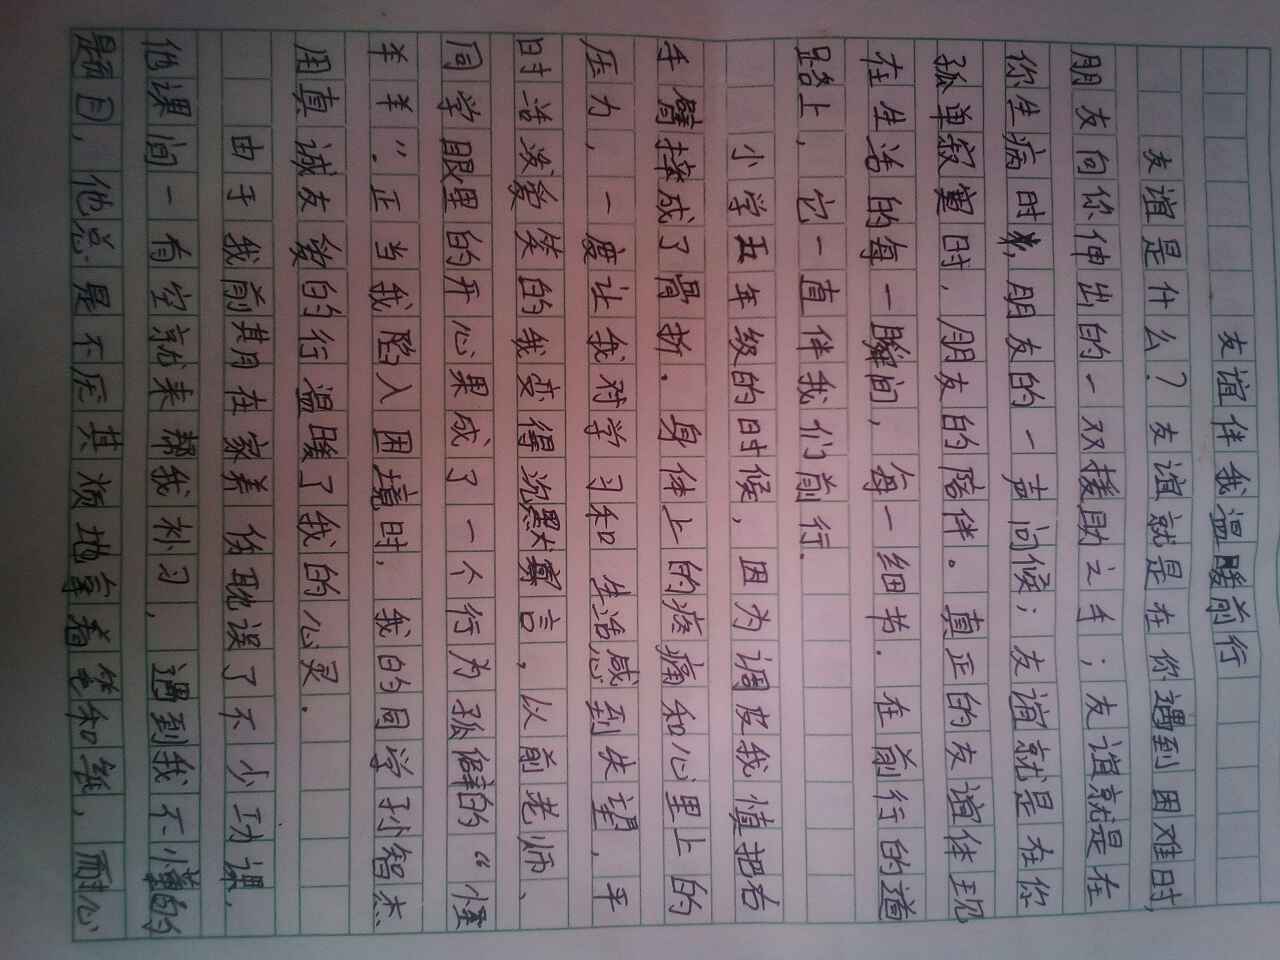 友谊伴我温暖前行
友谊是什么？友谊就是在你遇到困难时，
朋友向你伸出的一双援助之手；友谊就是在
你生病时，朋友的一声问候；友谊就是在你
孤单寂寞时，朋友的陪伴。真正的友谊体现
在生活的每一瞬间，每一细节．在前行的道
路上，它一直伴我们前行．
小学五年级的时候，因为调皮我慎把右
手臂摔成了骨折．身体上的疼痛和心里上的
压力，一度让我对学习和生活感到失望，平
时活泼爱笑的我变得沉默寡言，以前老师、
同学眼里的开心果成了一个行为孤僻的“怪
羊羊”．正当我陷入困境时，我的同学孙智杰
用真诚友爱的行温暖了我的心灵．
由于我前期在家养伤耽误了不少功课，
他课间一有空就来帮我补习，遇到我不懂的
题目，他总是不厌其烦地拿着笔和纸，耐心